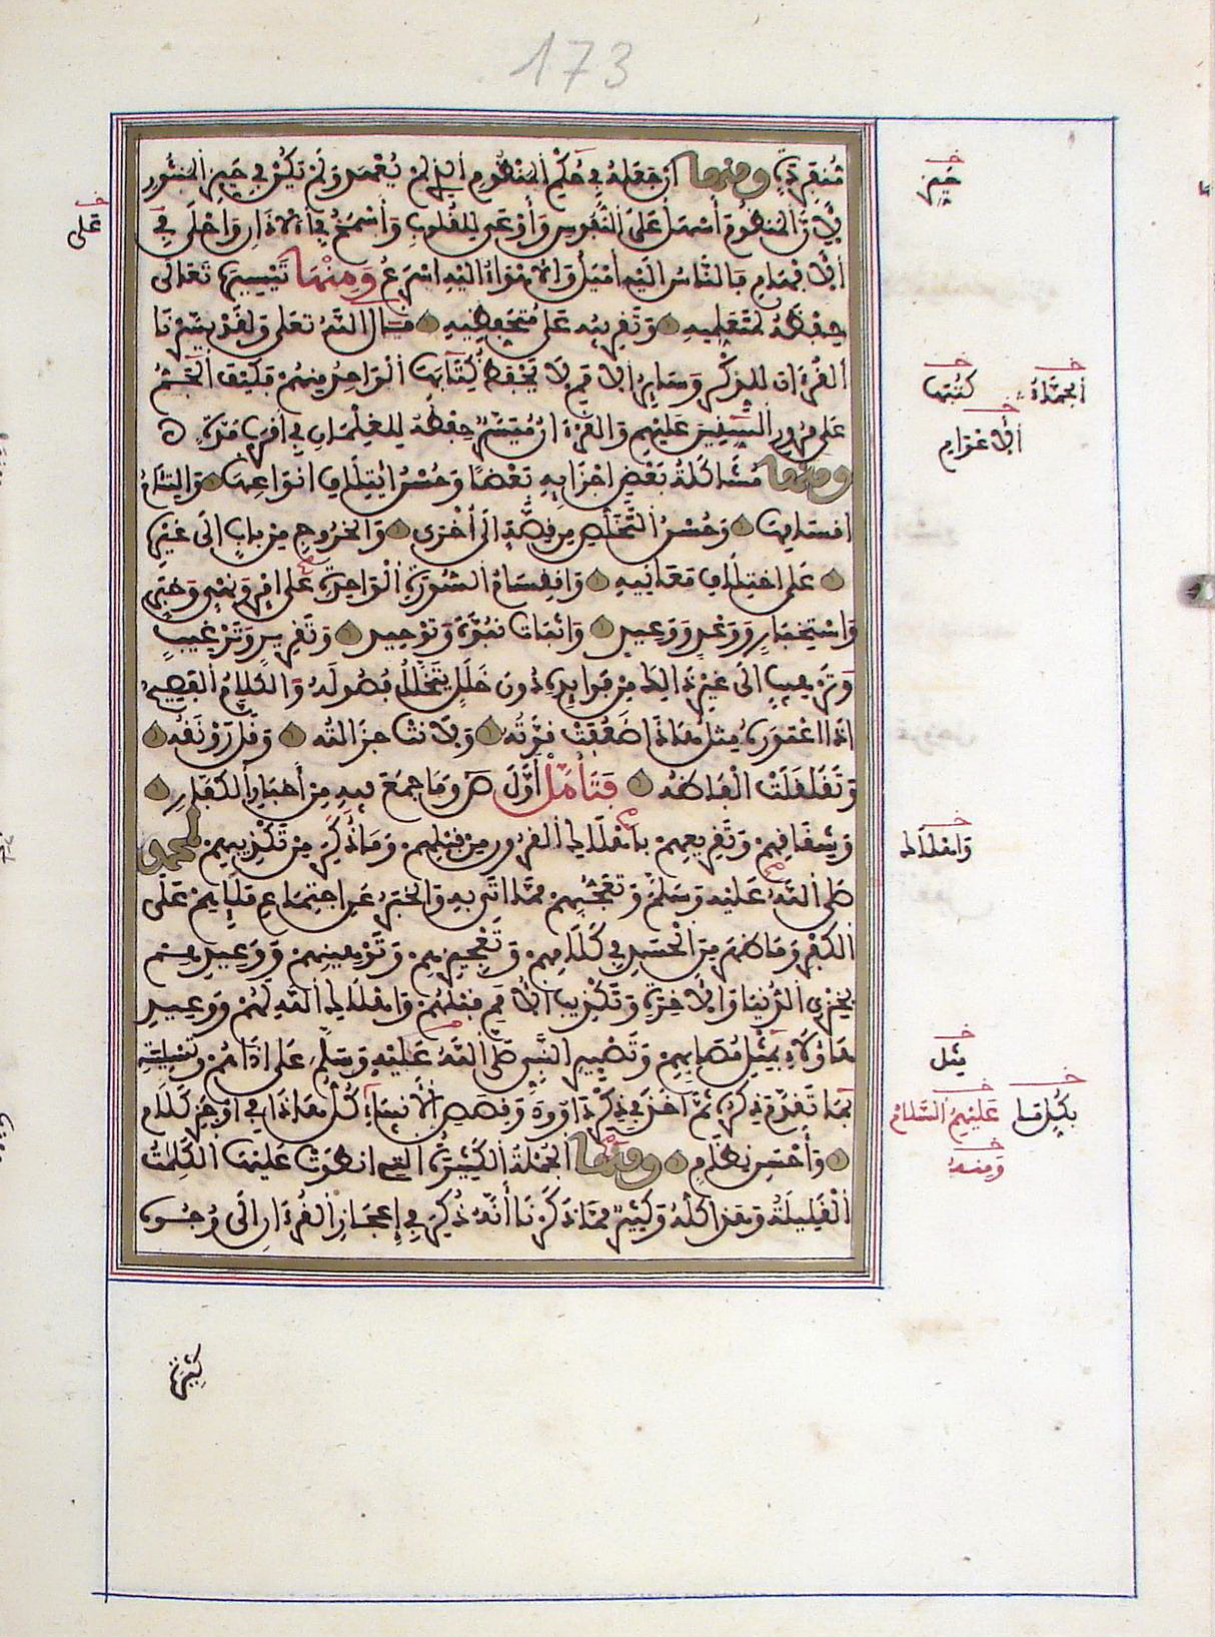 173
مُنْفَرِدَةٍ ومنها أن جعله في حكم المنظوم الذي لم يُعهد ولم يكن في حيز المنثور
لأن المنظوم أسهل على النفوس وأوعى للقلوب وأسمح في الآذان وأحلى في
الأفهام فالناس إليه أميل والأهواء إليه أسرع ومنها تيسيره تعالى
حفظه لمتعلميه وتقريبه على متحفظيه قال الله تعلى ولقد يسرنا
القرءان للذكر وسائر الأمم لا يحفظ كتابها الواحد منهم فكيف الجَمّ
على مرور السنين عليهم والقرءان مُيَسَّر حفظه للغلمان في أقرب مدة
ومنها مشاكلة بعض أجزائه بعضا وحسن ائتلاف أنواعها والتئام
أقسامها وحسن التخلص من قصة إلى أخرى والخروج من باب إلى غيره
على اختلاف معانيه وانقسام السورة الواحدة على أمر ونهي وخبر
واستخبار ووعد ووعيد وإثبات نبوة وتوحيد وتفريد وترغيب
وترهيب إلى غير ذالك من فوائده دون خلل يتخلل فصوله والكلام الفصيح
إذا اعتوره مثل هاذا ضعفت قوته ولانت جزالته وقل رونقه
وتقلقلت ألفاظه فتأمل أول ص وما جمع فيه من أخبار الكفار
وشقاقهم وتقريعهم بإهلاك القرون من قبلهم وما ذكر من تكذيبهم لمحمد
صلى الله عليه وسلم وتعجبهم مما أتى به والخبر عن اجتماع ملإهم على
الكفر وما ظهر من الحسد في كلامهم وتعجيزهم وتوهينهم ووعيدهم
بخزي الدنيا والآخرة وتكذيب الأمم قبلهم وإهلاك الله لهم ووعيد
هاؤلاء بمثل مصابهم وتصبير النبي صلى الله عليه وسلم على أذاهم وتسليته
بما تقدم ذكره ثم أخذ في ذكر داوود وقصص الأنبياء كل هاذا في أوجز كلام
وأحسن نظام ومنها الجملة الكثيرة التي انطوت عليها الكلمات
القليلة وهذا كله وكثير مما ذكرنا أنه ذكر في إعجاز القرءان إلى وجوه
خ حيز
خ على
خ الجماء
خ كتبها
خ الأعوام
خ وإهلاك
خ مثل
خ بكل هذا
خ عليهم السلام
خ ومنه
كثيرة